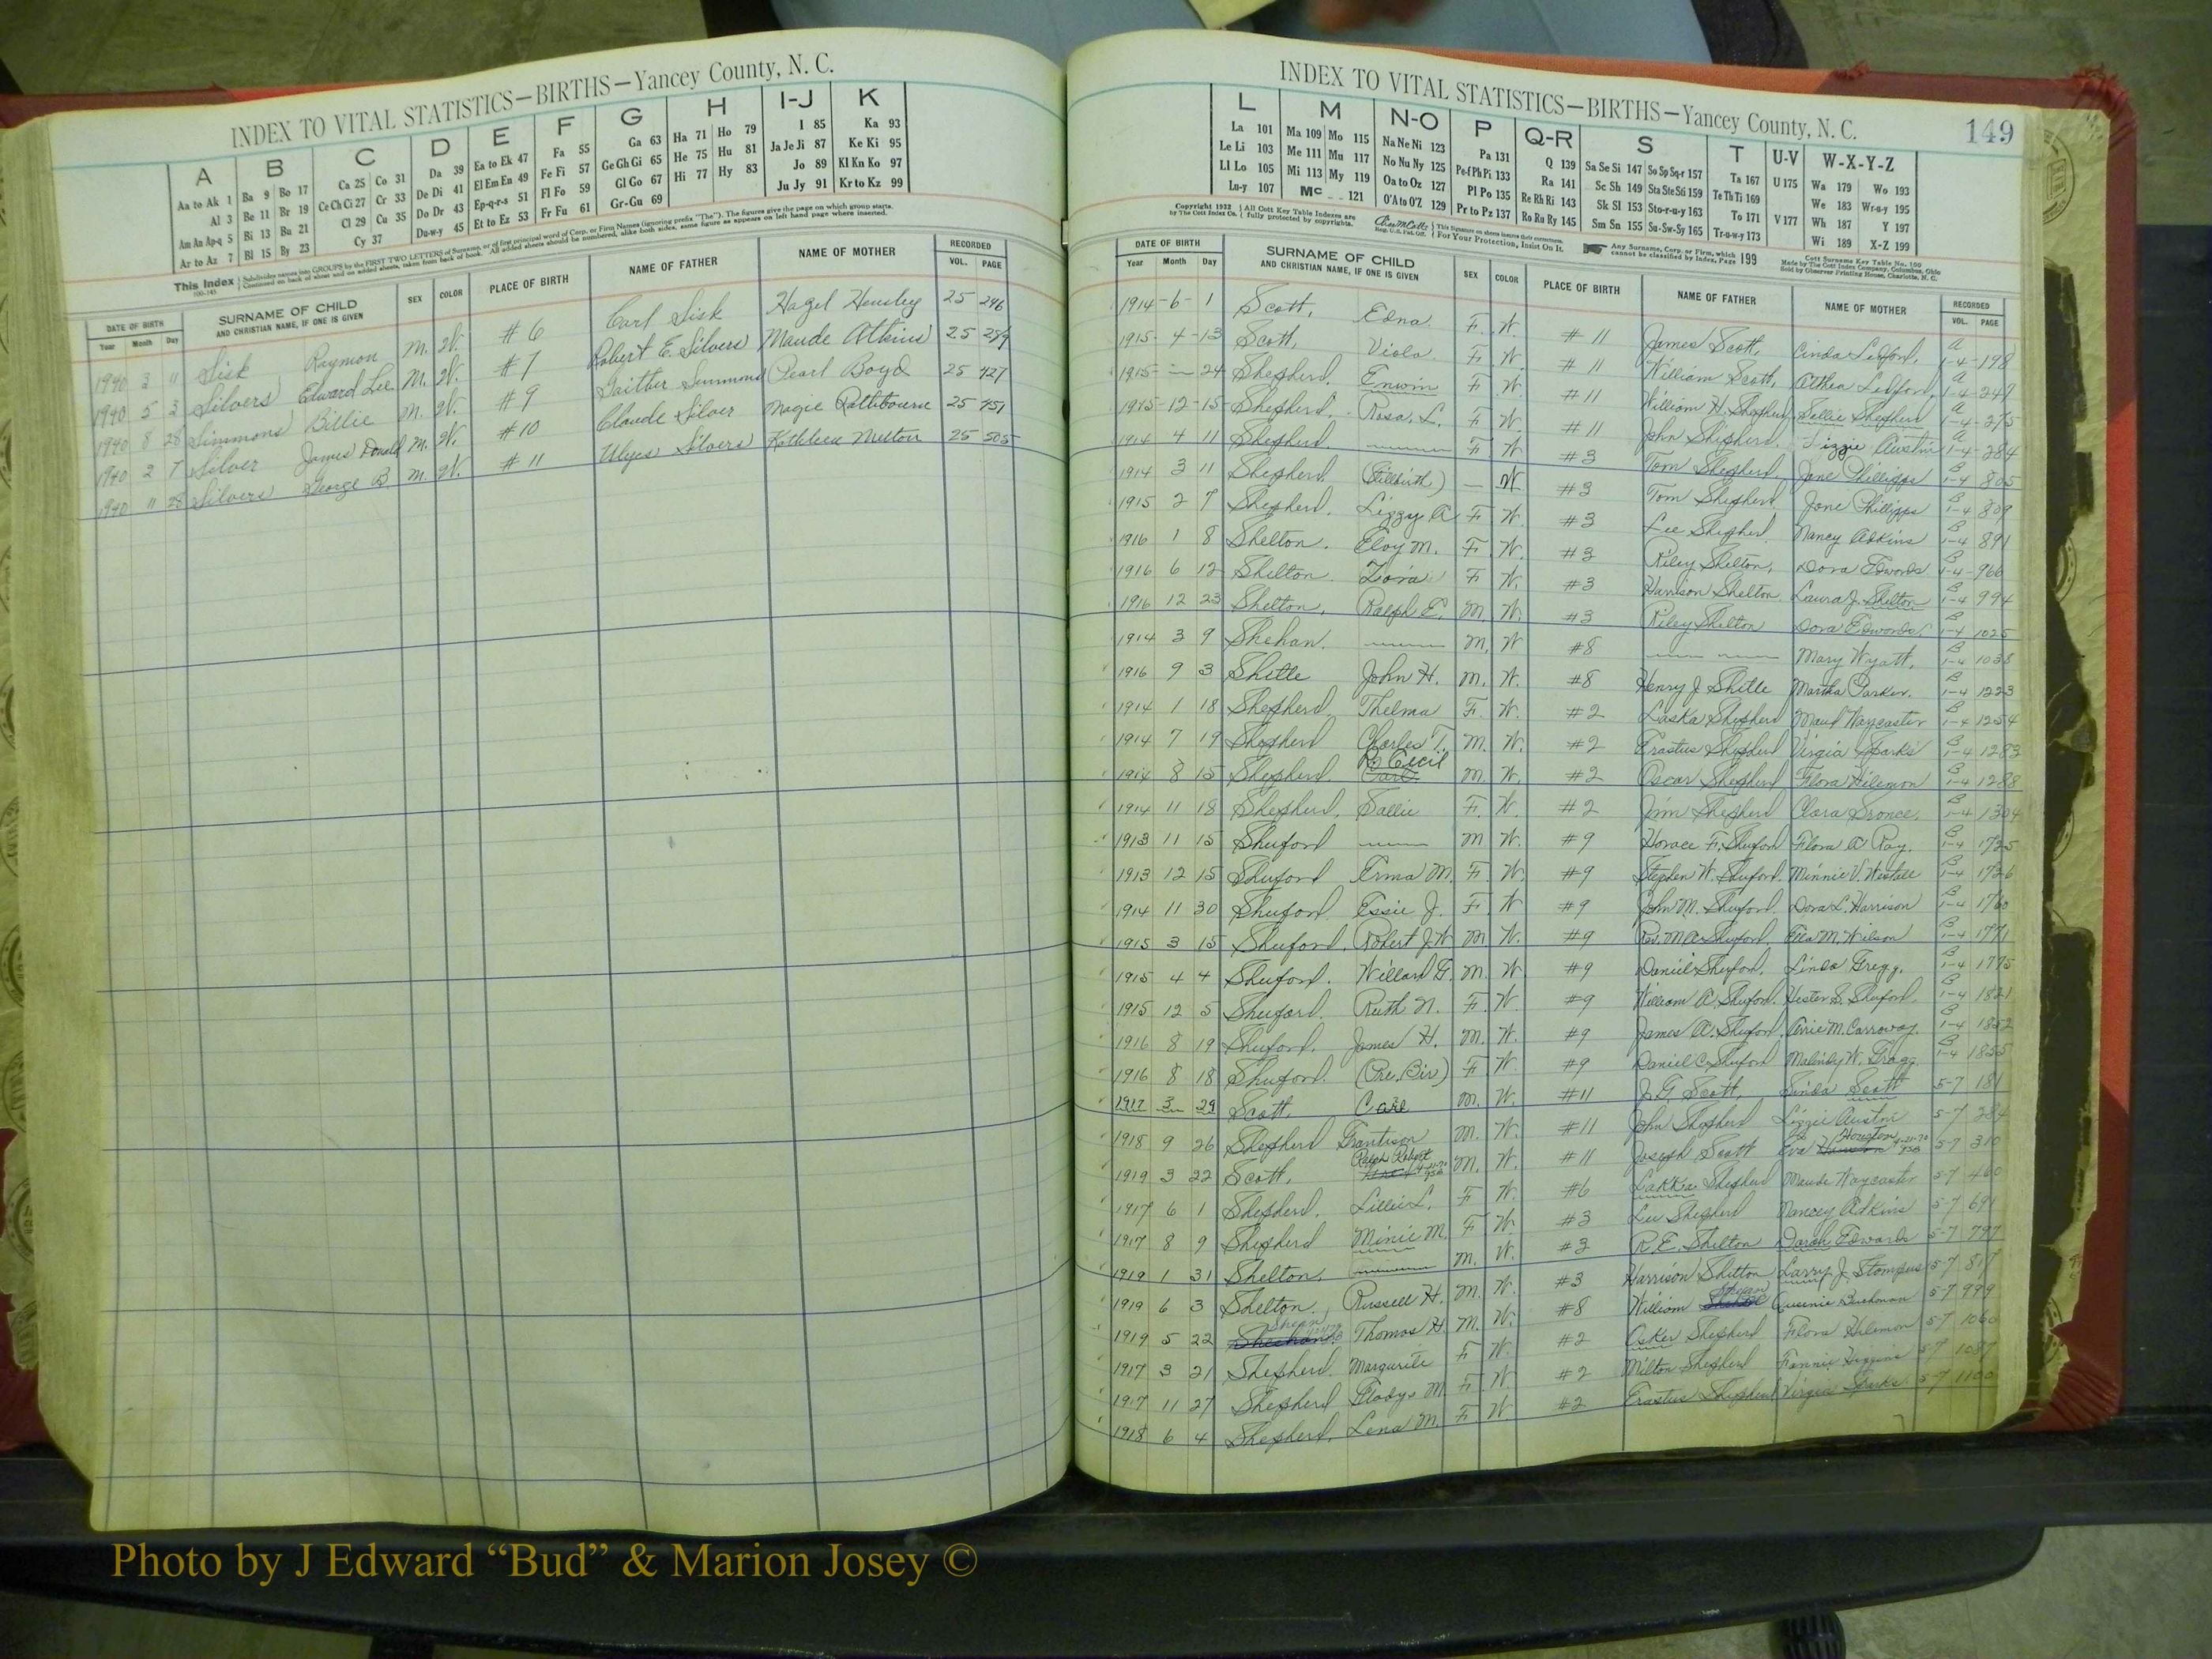 INDEX TO VITAL STATISTICS—BIRTHS—Yancey County, N. C.
A B C D E F G H I-J K
Aa to Ak 1 Ba 9 Bo 17 Ca 25 Co 31 Da 39 Ea to Ek 47 Fa 55 Ga 63 Ha 71 Ho 79 I 85 Ka 93
Al 3 Be 11 Br 19 Ce Ch Ci 27 Cr 33 De Di 41 El Em En 49 Fe Fi 57 Ge Gh Gi 65 He 75 Hu 81 Ja Je Ji 87 Ke Ki 95
Am An Ap-q 5 Bi 13 Bu 21 Cl 29 Cu 35 Do Dr 43 Ep-q-r-s 51 Fl Fo 59 Gl Go 67 Hi 77 Hy 83 Jo 89 Kl Kn Ko 97
Ar to Az 7 Bl 15 By 23 Cy 37 Du-w-y 45 Et to Ez 53 Fr Fu 61 Gr-Gu 69 Ju Jy 91 Kr to Kz 99
This Index Subdivides names into GROUPS by the FIRST TWO LETTERS of Surname, or of first principal word of Corp. or Firm Names (ignoring prefix "The"). The figures give the page on which group starts.
Continued on back of sheet and on added sheets, taken from back of book. All added sheets should be numbered, alike both sides, same figure as appears on left hand page where inserted.
DATE OF BIRTH SURNAME OF CHILD SEX COLOR PLACE OF BIRTH NAME OF FATHER NAME OF MOTHER RECORDED
Year Month Day AND CHRISTIAN NAME, IF ONE IS GIVEN VOL. PAGE
1940 3 11 Sisk Raymon M. W. #6 Carl Sisk Hazel Hensley 25 246
1940 5 3 Silvers Edward Lee M. W. #7 Robert E. Silvers Maude Atkins 25 289
1940 8 28 Simmons Billie M. W. #9 Gaither Simmons Pearl Boyd 25 427
1940 2 7 Silver James Donald M. W. #10 Claude Silver Magie 25 451
1940 11 28 Silvers George B. M. W. #11 Ulyes Silvers Kathleen Melton 25 505
INDEX TO VITAL STATISTICS—BIRTHS—Yancey County, N. C. 149
L M N-O P Q-R S T U-V W-X-Y-Z
La 101 Ma 109 Mo 115 Na Ne Ni 123 Pa 131 Q 139 Sa Se Si 147 So Sp Sq-r 157 Ta 167 U 175 Wa 179 Wo 193
Le Li 103 Me 111 Mu 117 No Nu Ny 125 Pe-f Ph Pi 133 Ra 141 Sc Sh 149 Sta Ste Sti 159 Te Th Ti 169 We 183 Wr-u-y 195
Ll Lo 105 Mi 113 My 119 Oa to Oz 127 Pl Po 135 Re Rh Ri 143 Sk Sl 153 Sto-r-u-y 163 To 171 V 177 Wh 187 Y 197
Lu-y 107 Mc 121 O'A to O'Z 129 Pr to Pz 137 Ro Ru Ry 145 Sm Sn 155 Su-Sw-Sy 165 Tr-u-w-y 173 Wi 189 X-Z 199
Copyright 1932 by The Cott Index Co. All Cott Key Table Indexes are fully protected by copyrights. For Your Protection, Insist On It. Any Surname, Corp. or Firm, which cannot be classified by Index, Page 199
Cott Surname Key Table No. 100
Made by The Cott Index Company, Columbus, Ohio
Sold by Observer Printing House, Charlotte, N. C.
DATE OF BIRTH SURNAME OF CHILD SEX COLOR PLACE OF BIRTH NAME OF FATHER NAME OF MOTHER RECORDED
Year Month Day AND CHRISTIAN NAME, IF ONE IS GIVEN VOL. PAGE
1914-6-1 Scott, Edna F. W. #11 James Scott, Cinda Ledford, A 1-4-198
1915-4-13 Scott, Viola. F. W. #11 William Scott, Althea Ledford, A 1-4-249
1915-24 Shepherd, Erwin F W. #11 William H. Shepherd Sallie Shepherd A 1-4-275
1915-12-15 Shepherd, Rosa, L. F W. #11 John Shepherd, Lizzie Austin A 1-4-284
1914 4 11 Shepherd. F W #3 Tom Shepherd, Jane Phillipps B 1-4 805
1914 3 11 Shepherd (Stillbirth) — W #3 Tom Shepherd, Jane Phillipps B 1-4 809
1915 2 7 Shepherd. Lizzy A F W. #3 Lee Shepherd. Nancy Adkins B 1-4 891
1916 1 8 Shelton. Eloy M. F W. #3 Riley Shelton, Dora Edwards B 1-4-966
1916 6 12 Shelton. Zora F W. #3 Harrison Shelton. Laura J. Shelton B 1-4 994
1916 12 23 Shelton, Ralph E. M W. #3 Riley Shelton Dora Edwards B 1-4 1025
1914 3 9 Shehan. M. W #8 Mary Wyatt, B 1-4 1038
1916 9 3 Shitle John H. M. W. #8 Henry J Shitle Martha Parker. B 1-4 1223
1914 1 18 Shepherd. Thelma F. W. #2 Laska Shepherd Maud Waycaster B 1-4 1254
1914 7 19 Shepherd Charles T. M. W. #2 Erastus Shepherd Virgia Sparks B 1-4 1283
1914 8 15 Shepherd. Cecil M W. #2 Oscar Shepherd Flora Hilemon B 1-4 1288
1914 11 18 Shepherd, Sallie F. W. #2 Jim Shepherd Clara Sronce. B 1-4 1304
1913 11 15 Shuford M W. #9 Horace F. Shuford Flora A Ray. B 1-4 1725
1913 12 15 Shuford Erma M. F. W. #9 Stephen W. Shuford. Minnie V. Westall B 1-4 1726
1914 11 30 Shuford. Essie J. F. W #9 John M. Shuford. Dora L. Harrison B 1-4 1760
1915 3 15 Shuford, Robert J. W M W. #9 Rev. M A Shuford, Ella M. Wilson B 1-4 1771
1915 4 4 Shuford. Willard G. M. W #9 Daniel Shuford, Linda Gregg. B 1-4 1775
1915 12 5 Shuford. Ruth N. F. W. #9 William A. Shuford. Hester S. Shuford. B 1-4 1821
1916 8 19 Shuford. James H. M. W. #9 James A. Shuford, Arrie M. Carroway. B 1-4 1852
1916 8 18 Shuford. (Pre. Bir) F W. #9 Daniel C. Shuford W. Gragg B 1-4 1855
1917 3 29 Scott. Carl M. W. #11 J. G. Scott, Sinda Scott 5-7 181
1918 9 26 Shepherd Grantison M. W. #11 John Shepherd Lizzie Austin 5-7 284
1919 3 22 Scott, Ralph Robert M. W. #11 Joseph Scott Eva Houston 5-7 310
1917 6 1 Shepherd. Lillie L. F W. #6 Lakka Shepherd Maude Waycaster 5-7 460
1917 8 9 Shepherd Minie M. F W. #3 Lee Shepherd Nancey Adkins 5-7 691
1919 1 31 Shelton. M. W. #3 R. E. Shelton Darah Edwards 5-7 797
1919 6 3 Shelton. Russell H. M. W. #3 Harrison Shelton Larry J. Stompus 5-7 817
1919 5 22 Thomas H. M. W. #8 William Queenie 5-7 999
1917 3 21 Shepherd. Margurite F W. #2 Osker Shepherd Flora Hilemon 5-7 1060
1917 11 27 Shepherd Gladys M. F. W. #2 Milton Shepherd Fannie Higgins 5-7 1087
1918 6 4 Shepherd, Lena M. F. W #2 Erastus Shepherd Virgia Sparks 5-7 1100
Photo by J Edward “Bud” & Marion Josey ©